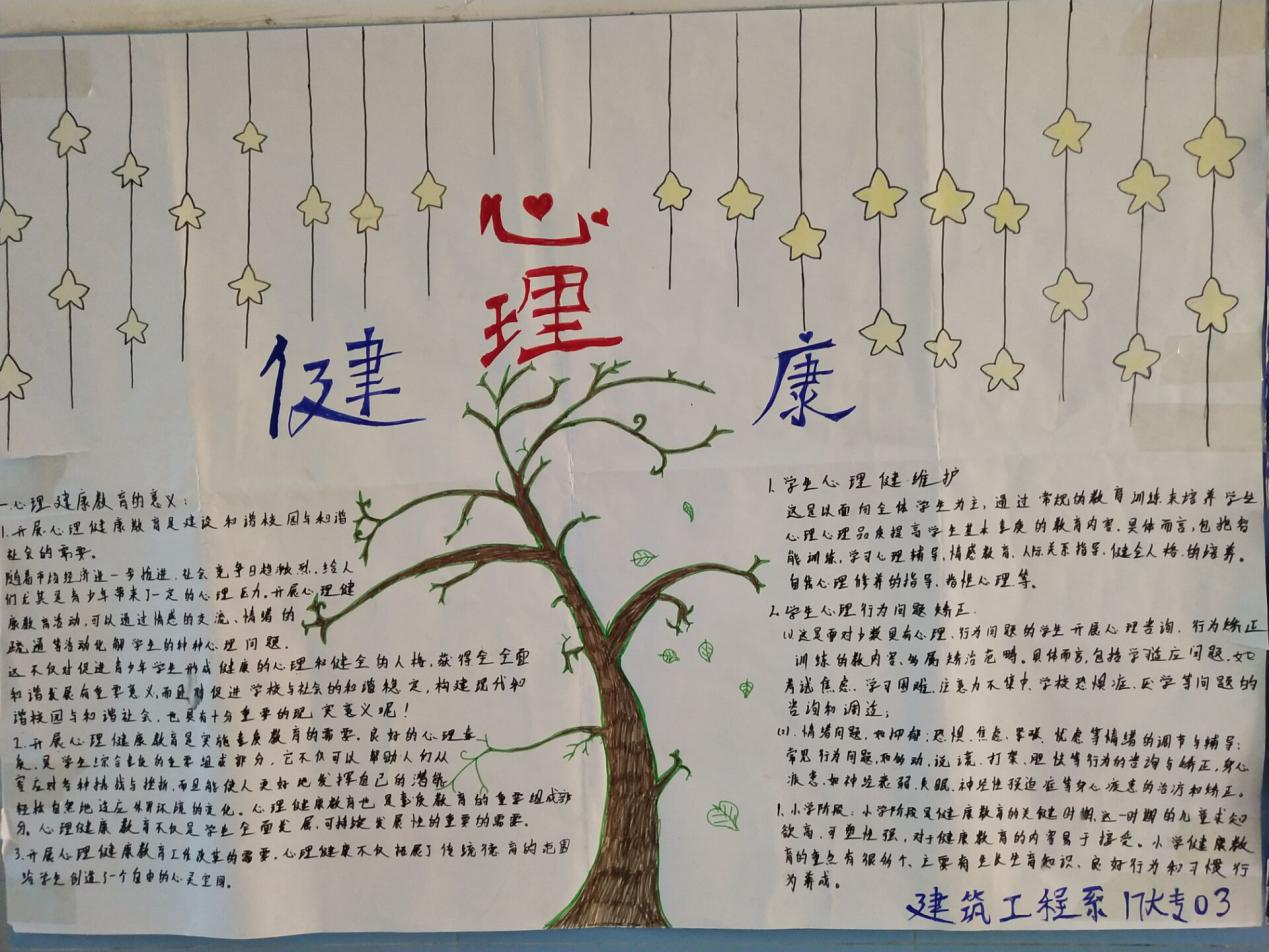 心
理
健
康
一.心理健康教育的意义:
1.开展心理健康教育是建设和谐校园与和谐
社会的需要。
随着市场经济进一步推进,社会竞争日趋激烈,给人
们尤其是青少年带来了一定的心理压力.开展心理健
康教育活动,可以通过情感的交流、情绪的
疏通等活动化解学生的种种心理问题.
这不仅对促进青少年学生形成健康的心理和健全的人格,获得全全面
和谐发展有重要意义,而且对促进学校与社会的和谐稳定,构建现代和
谐校园与和谐社会,也具有十分重要的现实意义呢!
2.开展心理健康教育是实施素质教育的需要.良好的心理素
质,是学生综合素质的重要组成部分,它不仅可以帮助人们从
容应对各种挑战与挫折,而且能使人更好地发挥自己的潜能
轻松自然地适应外界环境的变化。心理健康教育也是素质教育的重要组成部
分。心理健康教育不仅是学生全面发展,可持续发展性的重要的需要。
3.开展心理健康教育工作改革的需要.心理健康不仅拓展了传统德育的范围
给学生创造了一个自由的心灵空间。
1.学生心理健维护
这是以面向全体学生为主,通过常规的教育训练来培养学生
心理心理品质提高学生基本素质的教育内容.具体而言,包括智
能训练,学习心理辅导,情感教育,人际关系指导,健全人格的培养。
自我心理修养的指导,性心理等。
2.学生心理行为问题矫正.
以这是面对少数具有心理、行为问题的学生开展心理咨询、行为矫正
训练的教内容,多属矫治范畴。具体而言,包括学习适应问题,如
考试焦虑、学习困难.注意力不集中.学校恐惧症.厌学等问题的
咨询和调适;
(1).情绪问题,如抑郁;恐惧.焦虑.紧张.忧虑等情绪的调节与辅导;
常见行为问题,如多动,说谎,打架,胆怯等行为的咨询与矫正,身心
疾患,如神经衰弱,失眠.神经性强迫症等身心疾患的治疗和矫正。
1.小学阶段:小学阶段是健康教育的关键时期.这一时期的儿童求知
欲高,可塑性强,对于健康教育的内容易于接受。小学健康教
育的重点有很多个、主要有生长生育知识、良好行为和习惯行
为养成。
建筑工程系17大专03